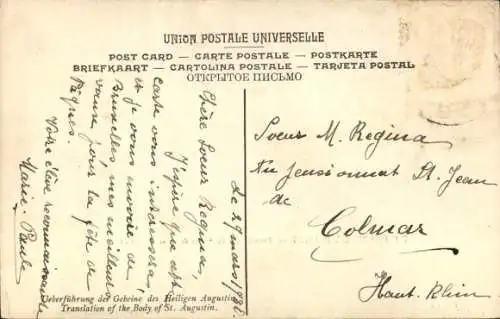 UNION POSTALE UNIVERSELLE
POST CARD — CARTE POSTALE — POSTKARTE
BRIEFKAART — CARTOLINA POSTALE — TARJETA POSTAL
ОТКРЫТОЕ ПИСЬМО
Le 29 mars
Chère Soeur Regina,
J'espère que cette
carte vous intéressera
et je vous envoie de
Bruxelles mes meilleurs
vœux pour la fête de
Pâques.
Votre élève reconnaissante
Marie-Paule
Soeur M. Regina
Au Pensionnat St. Jean
de
Colmar
Haut-Rhin
Ueberführung der Gebeine des Heiligen Augustin
Translation of the Body of St. Augustin.